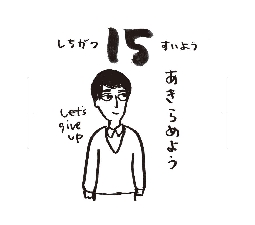 しちがつ 15 すいよう
あきらめよう
Let's
give
up